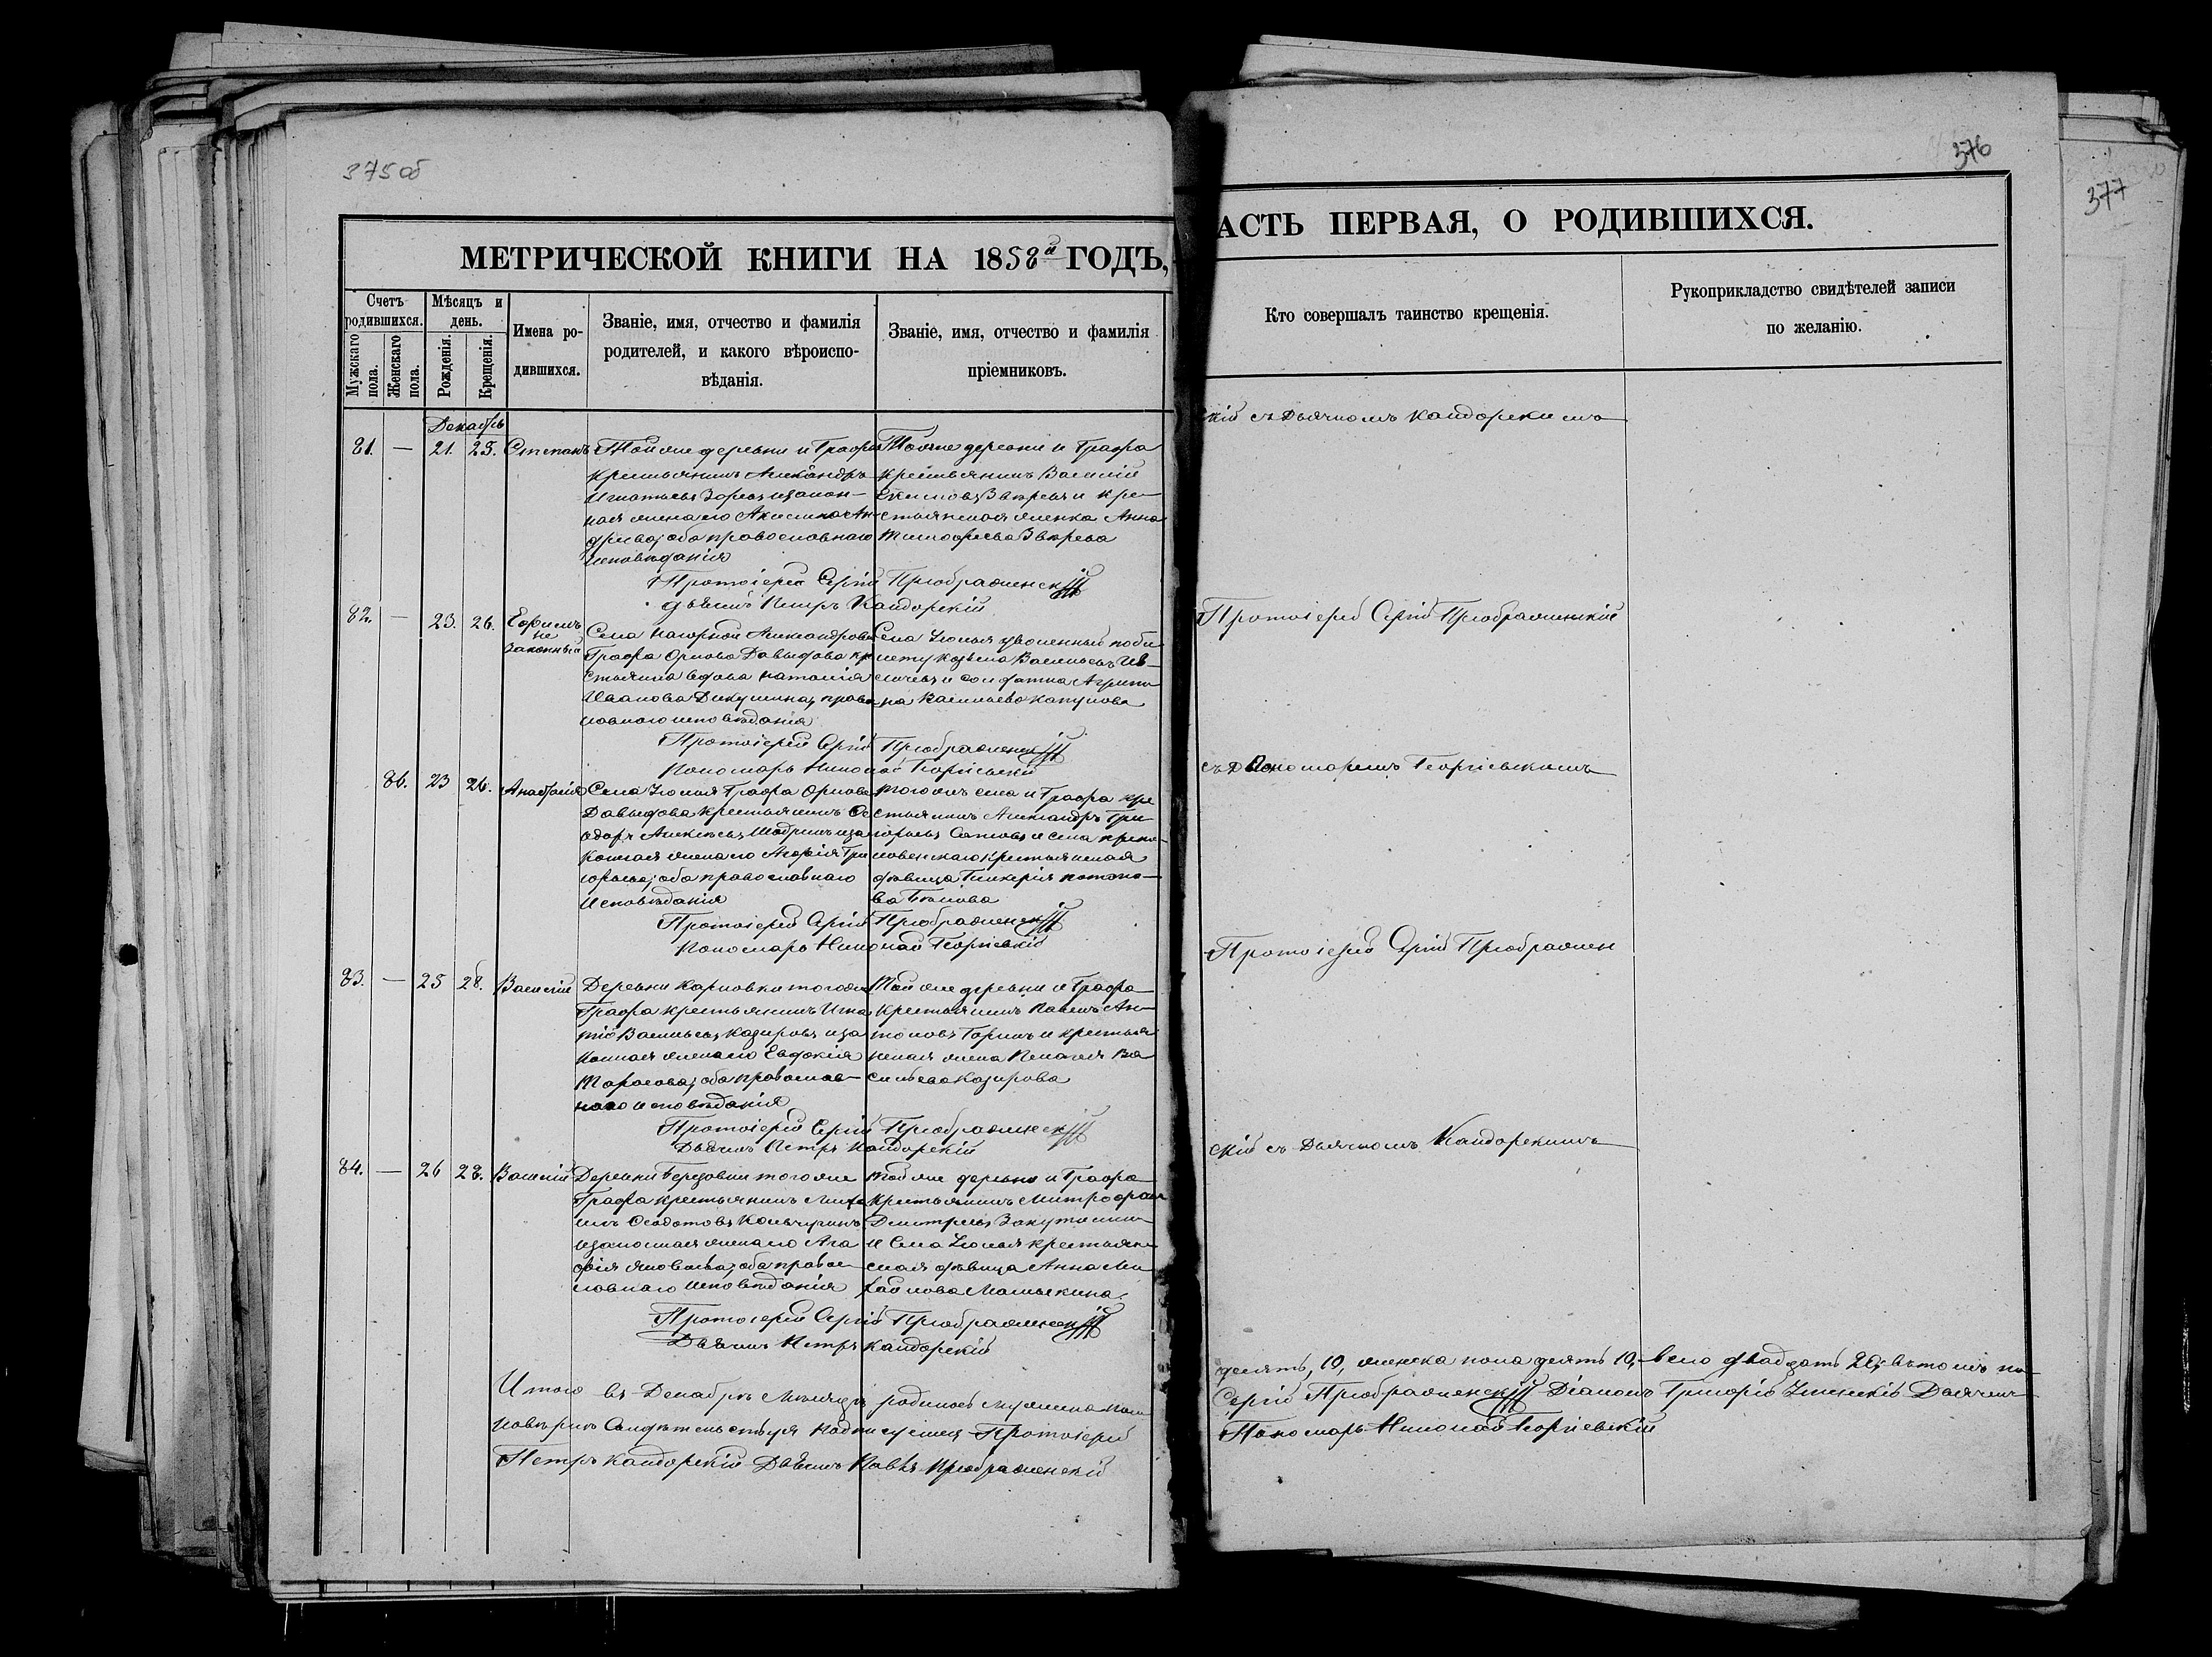 375 об
376
377
МЕТРИЧЕСКОЙ КНИГИ НА 1858й ГОДЪ,
АСТЬ ПЕРВАЯ, О РОДИВШИХСЯ.
Счетъ родившихся.
Мужскаго пола.
Женскаго пола.
Мѣсяцъ и день.
Рожденія.
Крещенія.
Имена родившихся.
Званіе, имя, отчество и фамилія
родителей, и какого вѣроиспо-
вѣданія.
Званіе, имя, отчество и фамилія
пріемниковъ.
Кто совершалъ таинство крещенія.
Рукоприкладство свидѣтелей записи
по желанію.
Декабрь
81. — 21. 25. Степанъ
Той же деревни и Графа
крестьянинъ Александръ
Игнатьевъ изакон-
ная жена его Акилина Ан-
дреева; оба православнаго
исповѣданія
Тойже деревни и Графа
крестьянинъ Василій
Звѣревъ и кре-
стьянская женка Анна
Тимофеева Звѣрева
Протоіерей Сергій Преображенскій
дьячекъ Петръ Кандорскій
кій съ Дьячкомъ Кандорскимъ
82. — 23. 26. Ефимъ
не
законный
Села Нагорной Александровки
Графа Орлова Давыдова кре
стьянина вдова Наталія
Иванова Дикушина, право
славного исповѣданія
Села уволенный по би
лету Козьма Васильевъ
и солдатка Агрипи
на Васильева
Протоіерей Сергій Преображенскій
Пономарь Николай Георгіевскій
Протоіерей Сергій Преображенскій
съ Пономаремъ Георгіевскимъ
86. 23 26. Анастасія
Села Графа Орлова
Давыдова крестьянинъ Ѳе
одоръ Алексѣевъ изза
конная жена его Агафія Гри
горьева; оба православнаго
исповѣданія
того жъ села и Графа кре
стьянинъ Александръ Гри
горьевъ и села
крестьянская
дѣвица Гликерія
ва Бѣлова
Протоіерей Сергій Преображенскій
Пономарь Николай Георгіевскій
Протоіерей Сергій Преображен
83. — 25 28. Василій
Деревни Карловки тогоже
Графа крестьянинъ Игна
тій Васильевъ Казировъ иза
конная жена его Евдокія
Тарасова; оба православ-
наго исповѣданія
Той же деревни и Графа
крестьянинъ Павелъ Ан-
тоновъ Горинъ и крестьян
ская жена Пелагея Ва
сильева Казирова
Протоіерей Сергій Преображенскій
Дьячекъ Петръ Кандорскій
скій съ Дьячкомъ Кандорскимъ
84. — 26 28. Василій
Деревни Березовки тогоже
Графа крестьянинъ
Ѳедотовъ Кольчугинъ
изаконная жена его Ага
фія Яковлева; оба право
славнаго исповѣданія
той же деревни и Графа
крестьянинъ Митрофанъ
Дмитріевъ
и Села крестьян
ская дѣвица Анна Ми
хайлова
Протоіерей Сергій Преображенскій
Дьячекъ Петръ Кандорскій
Итого въ Декабрѣ Мѣсяцѣ родилось мужеска пола
десять, 10, женска пола десять 10, всего двадцать 20; въ томъ по
Свидѣтельствуя подписуемся Протоіерей
Сергій Преображенскій Діаконъ Григорій Дьячекъ
Петръ Кандорскій Дьячекъ Павелъ Преображенскій
Пономарь Николай Георгіевскій